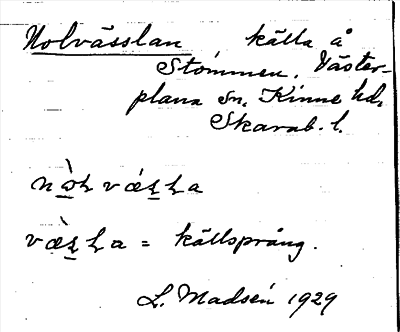 Nolvässlan, källa å
Stommen, Väster-
plana sn, Kinne hd,
Skarab. l.
væ̀ʂʅa = källsprång.
L. Madsén 1929